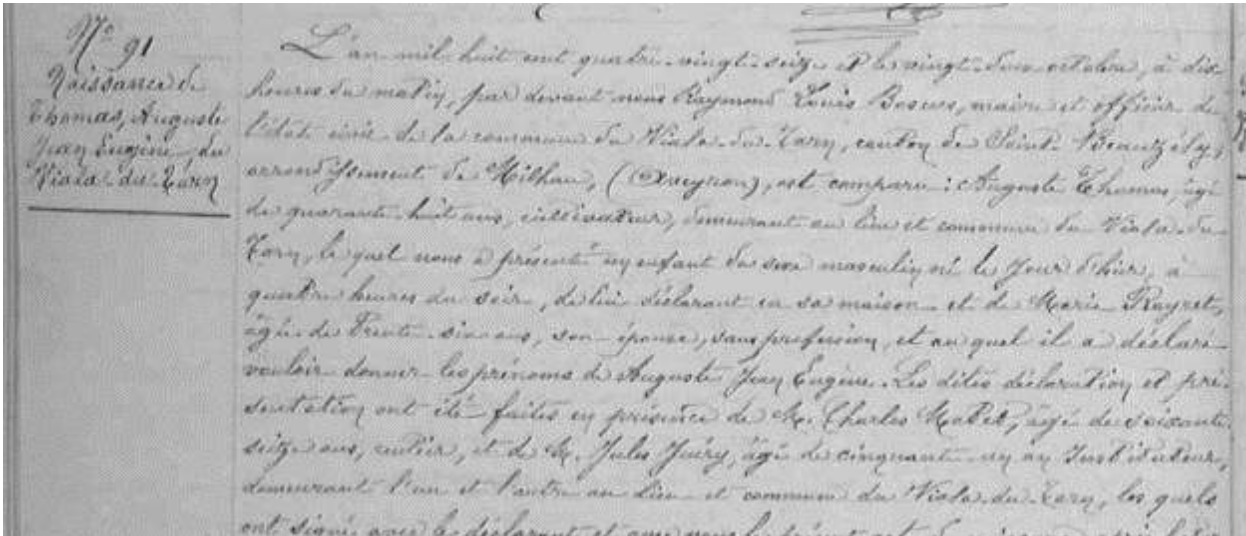 N° 91
Naissance de
Thomas, Auguste
Jean Eugène, du
Viala-du-Tarn
L'an mil huit cent quatre-vingt-seize et le vingt-deux octobre, à dix
heures du matin, par devant nous Raymond Louis, maire et officier de
l'état civil de la commune du Viala-du-Tarn, canton de Saint-Beauzély,
arrondissement de Milhau, (Aveyron), est comparu : Auguste Thomas, âgé
de quarante-huit ans, cultivateur, demeurant au lieu et commune du Viala-du-
Tarn, le quel nous a présenté un enfant du sexe masculin né le jour d'hier, à
quatre heures du soir, de lui déclarant en sa maison et de Marie Rayret,
âgée de trente-six ans, son épouse, sans profession, et au quel il a déclaré
vouloir donner les prénoms de Auguste Jean Eugène. Les dites déclaration et pré-
sentation ont été faites en présence de M. Charles, âgé de soixante
seize ans, rentier, et de M. Jules Juéry, âgé de cinquante-un an Instituteur,
demeurant l'un et l'autre au lieu et commune du Viala-du-Tarn, les quels
ont signé avec le déclarant et avec nous le présent acte